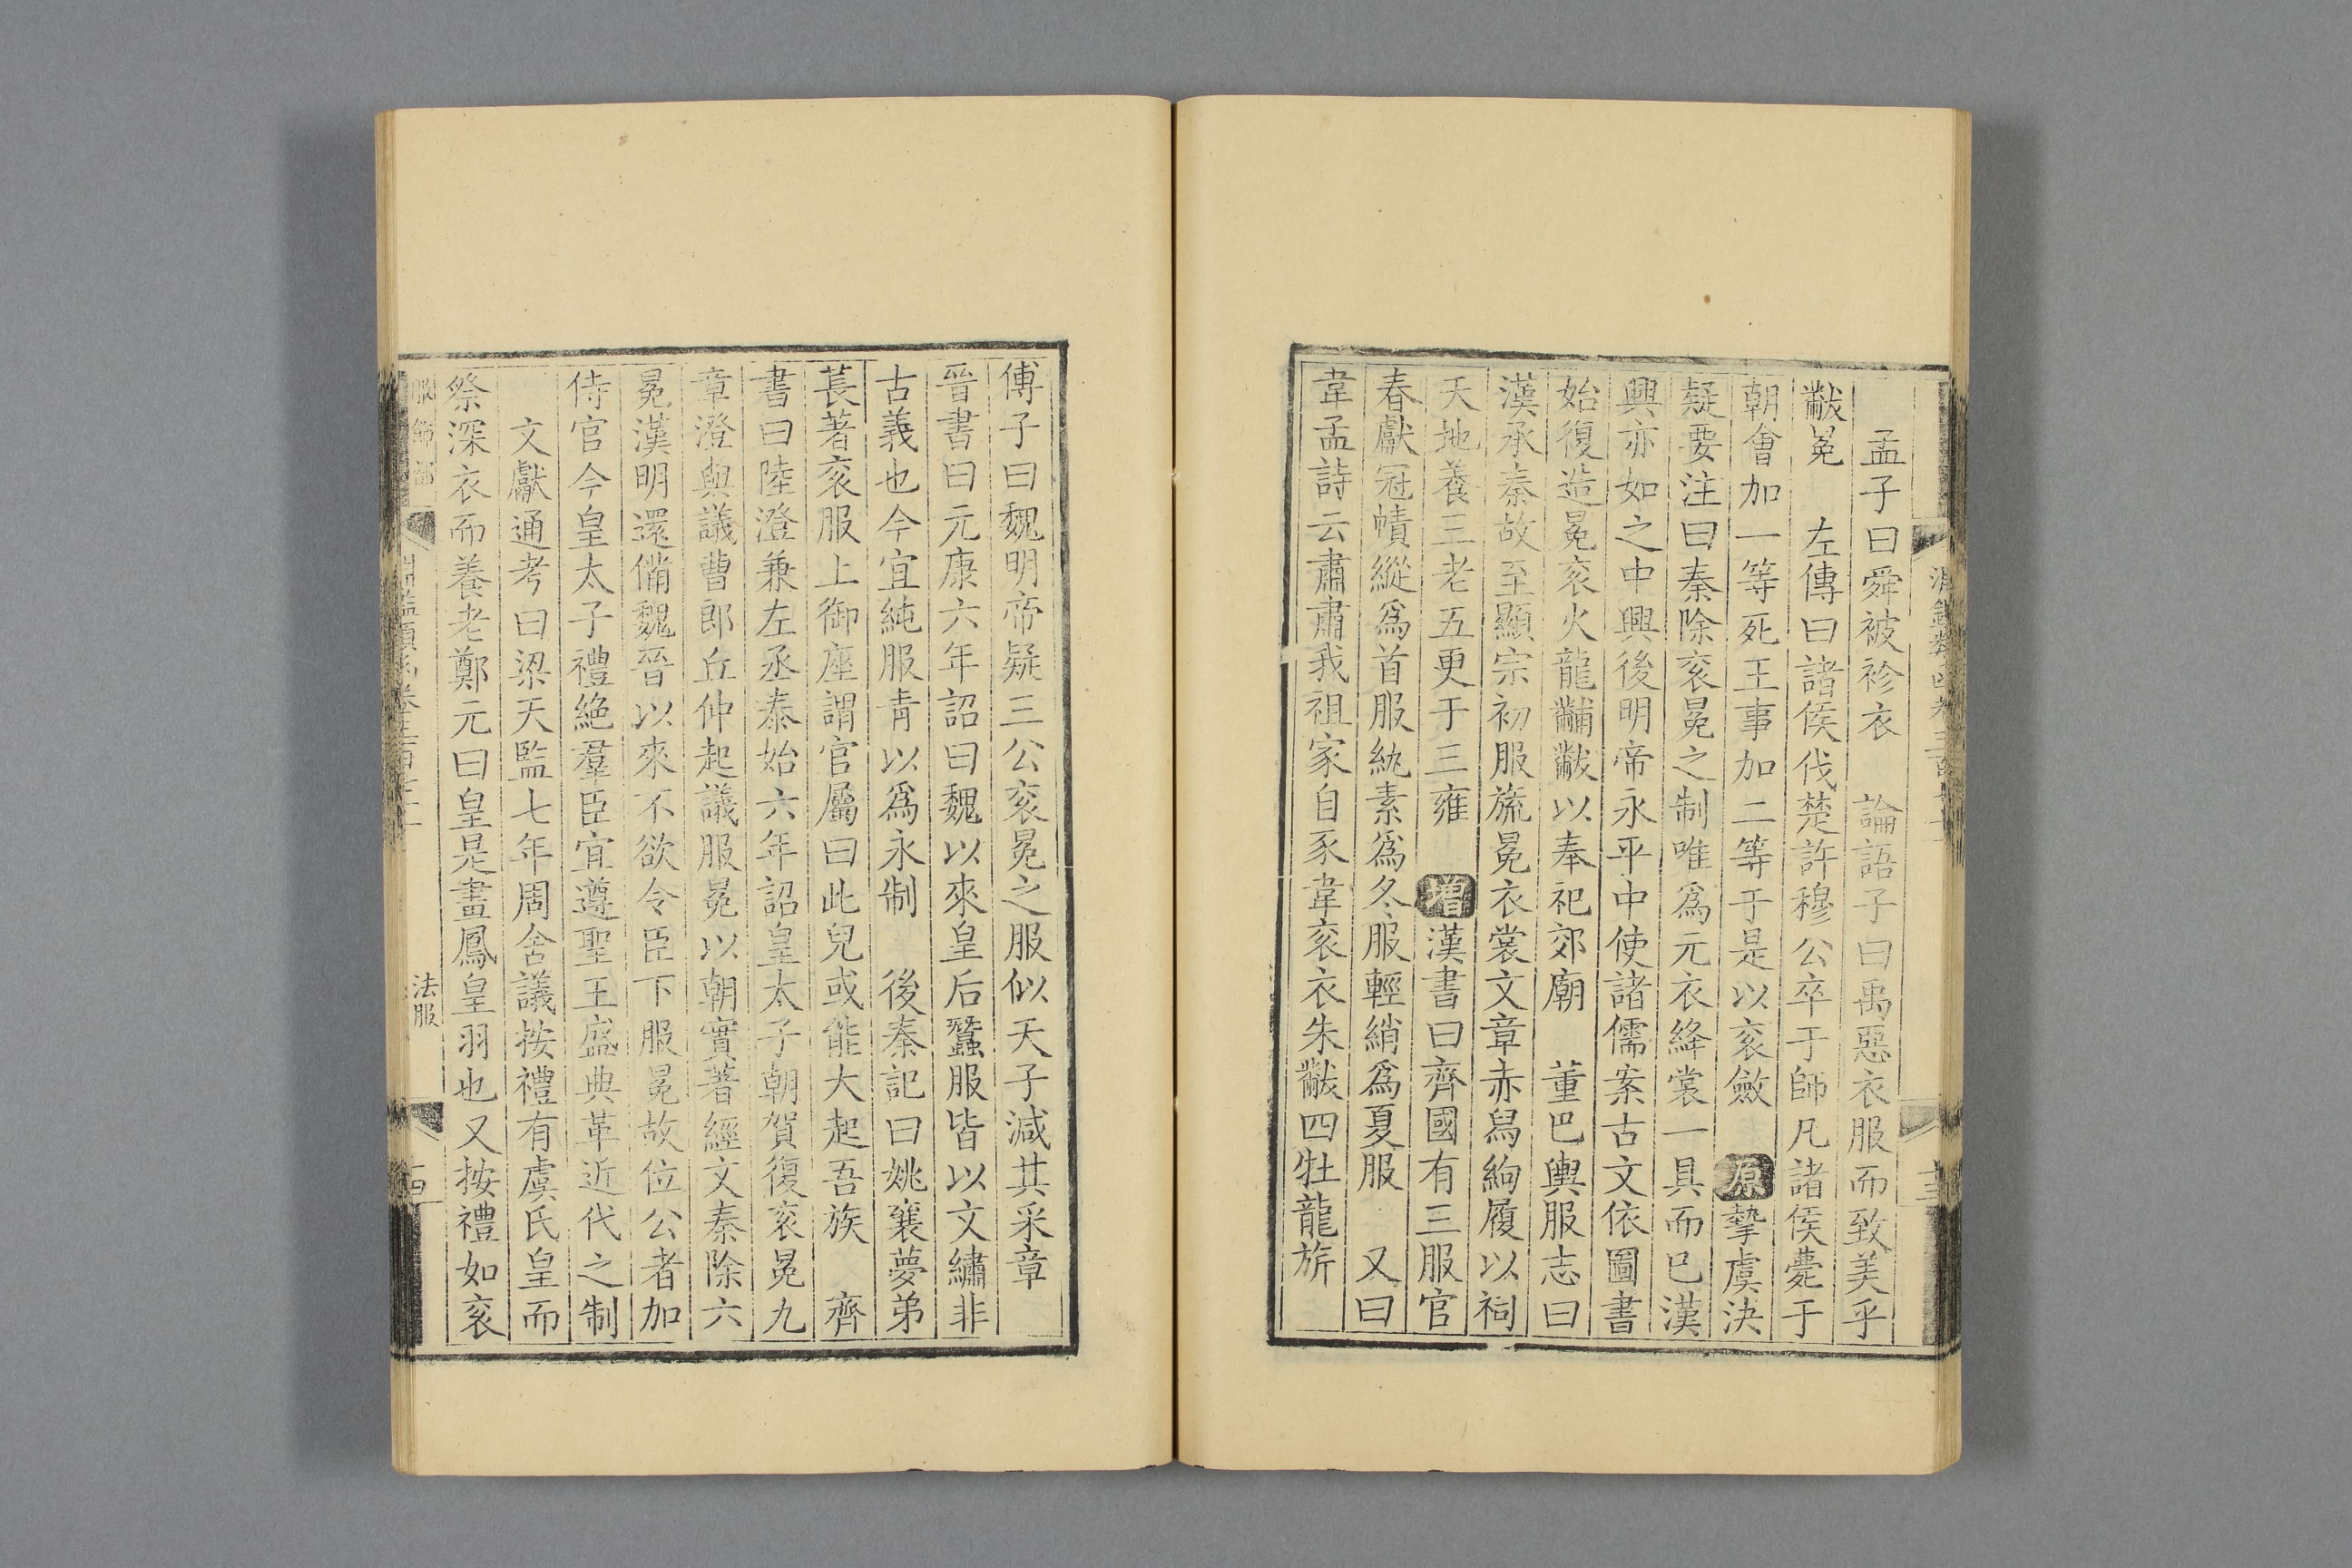 孟子曰舜被袗衣　論語子曰禹惡衣服而致美乎
黻冕　左傳曰諸侯伐楚許穆公卒于師凡諸侯薨于
朝會加一等死王事加二等于是以衮斂　原摯虞決
疑要注曰秦除衮冕之制唯爲元衣絳裳一具而已漢
興亦如之中興後明帝永平中使諸儒案古文依圖書
始復造冕衮火龍黼黻以奉祀郊廟　董巴輿服志曰
漢承秦故至顯宗初服旒冕衣裳文章赤舄絇履以祠
天地養三老五更于三雍　增漢書曰齊國有三服官
春獻冠幘縰爲首服紈素爲冬服輕綃爲夏服　又曰
韋孟詩云肅肅我祖家自豕韋衮衣朱黻四牡龍旂
傅子曰魏明帝疑三公衮冕之服似天子減其采章
晉書曰元康六年詔曰魏以來皇后蠶服皆以文繡非
古義也今宜純服青以爲永制　後秦記曰姚襄夢弟
萇著衮服上御座謂官屬曰此兒或能大起吾族　齊
書曰陸澄兼左丞泰始六年詔皇太子朝賀復衮冕九
章澄與議曹郎丘仲起議服冕以朝實著經文秦除六
冕漢明還備魏晉以來不欲令臣下服冕故位公者加
侍官今皇太子禮絶羣臣宜遵聖王盛典革近代之制
文獻通考曰梁天監七年周舍議按禮有虞氏皇而
祭深衣而養老鄭元曰皇是畫鳳皇羽也又按禮如衮
服飾部
法服